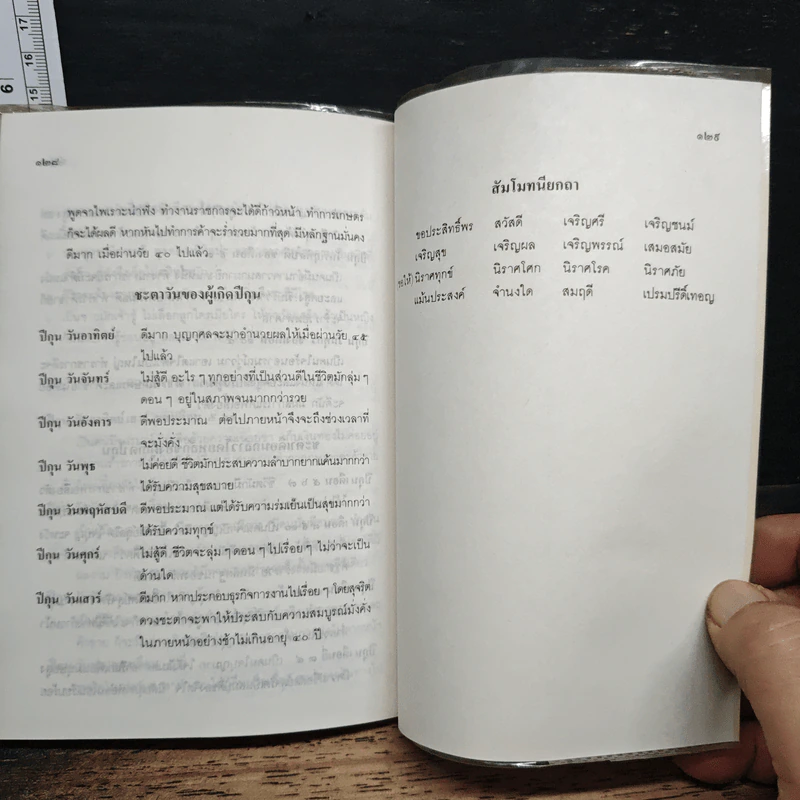 17
16
15
6
๑๒๘
พูดจาไพเราะน่าฟัง ทำงานราชการจะได้ดีก้าวหน้า ทำการเกษตร
ก็จะได้ผลดี หากหันไปทำการค้าจะร่ำรวยมากที่สุด มีหลักฐานมั่นคง
ดีมาก เมื่อผ่านวัย ๔๐ ไปแล้ว
ชะตาวันของผู้เกิดปีกุน
ปีกุน วันอาทิตย์ ดีมาก บุญกุศลจะมาอำนวยผลให้เมื่อผ่านวัย ๔๕
ไปแล้ว
ปีกุน วันจันทร์ ไม่สู้ดี อะไร ๆ ทุกอย่างที่เป็นส่วนดีในชีวิตมักลุ่ม ๆ
ดอน ๆ อยู่ในสภาพจนมากกว่ารวย
ปีกุน วันอังคาร ดีพอประมาณ ต่อไปภายหน้าจึงจะถึงช่วงเวลาที่
จะมั่งคั่ง
ปีกุน วันพุธ ไม่ค่อยดี ชีวิตมักประสบความลำบากยากแค้นมากกว่า
ได้รับความสุขสบาย
ปีกุน วันพฤหัสบดี ดีพอประมาณ แต่ได้รับความร่มเย็นเป็นสุขมากกว่า
ได้รับความทุกข์
ปีกุน วันศุกร์ ไม่สู้ดี ชีวิตจะลุ่ม ๆ ดอน ๆ ไปเรื่อย ๆ ไม่ว่าจะเป็น
ด้านใด
ปีกุน วันเสาร์ ดีมาก หากประกอบธุรกิจการงานไปเรื่อย ๆ โดยสุจริต
ดวงชะตาจะพาให้ประสบกับความสมบูรณ์มั่งคั่ง
ในภายหน้าอย่างช้าไม่เกินอายุ ๔๐ ปี
๑๒๙
สัมโมทนียกถา
ขอประสิทธิ์พร สวัสดี เจริญศรี เจริญชนม์
เจริญสุข เจริญผล เจริญพรรณ์ เสมอสมัย
ขอให้) นิราศทุกข์ นิราศโศก นิราศโรค นิราศภัย
แม้นประสงค์ จำนงใด สมฤดี เปรมปรีดิ์เทอญ